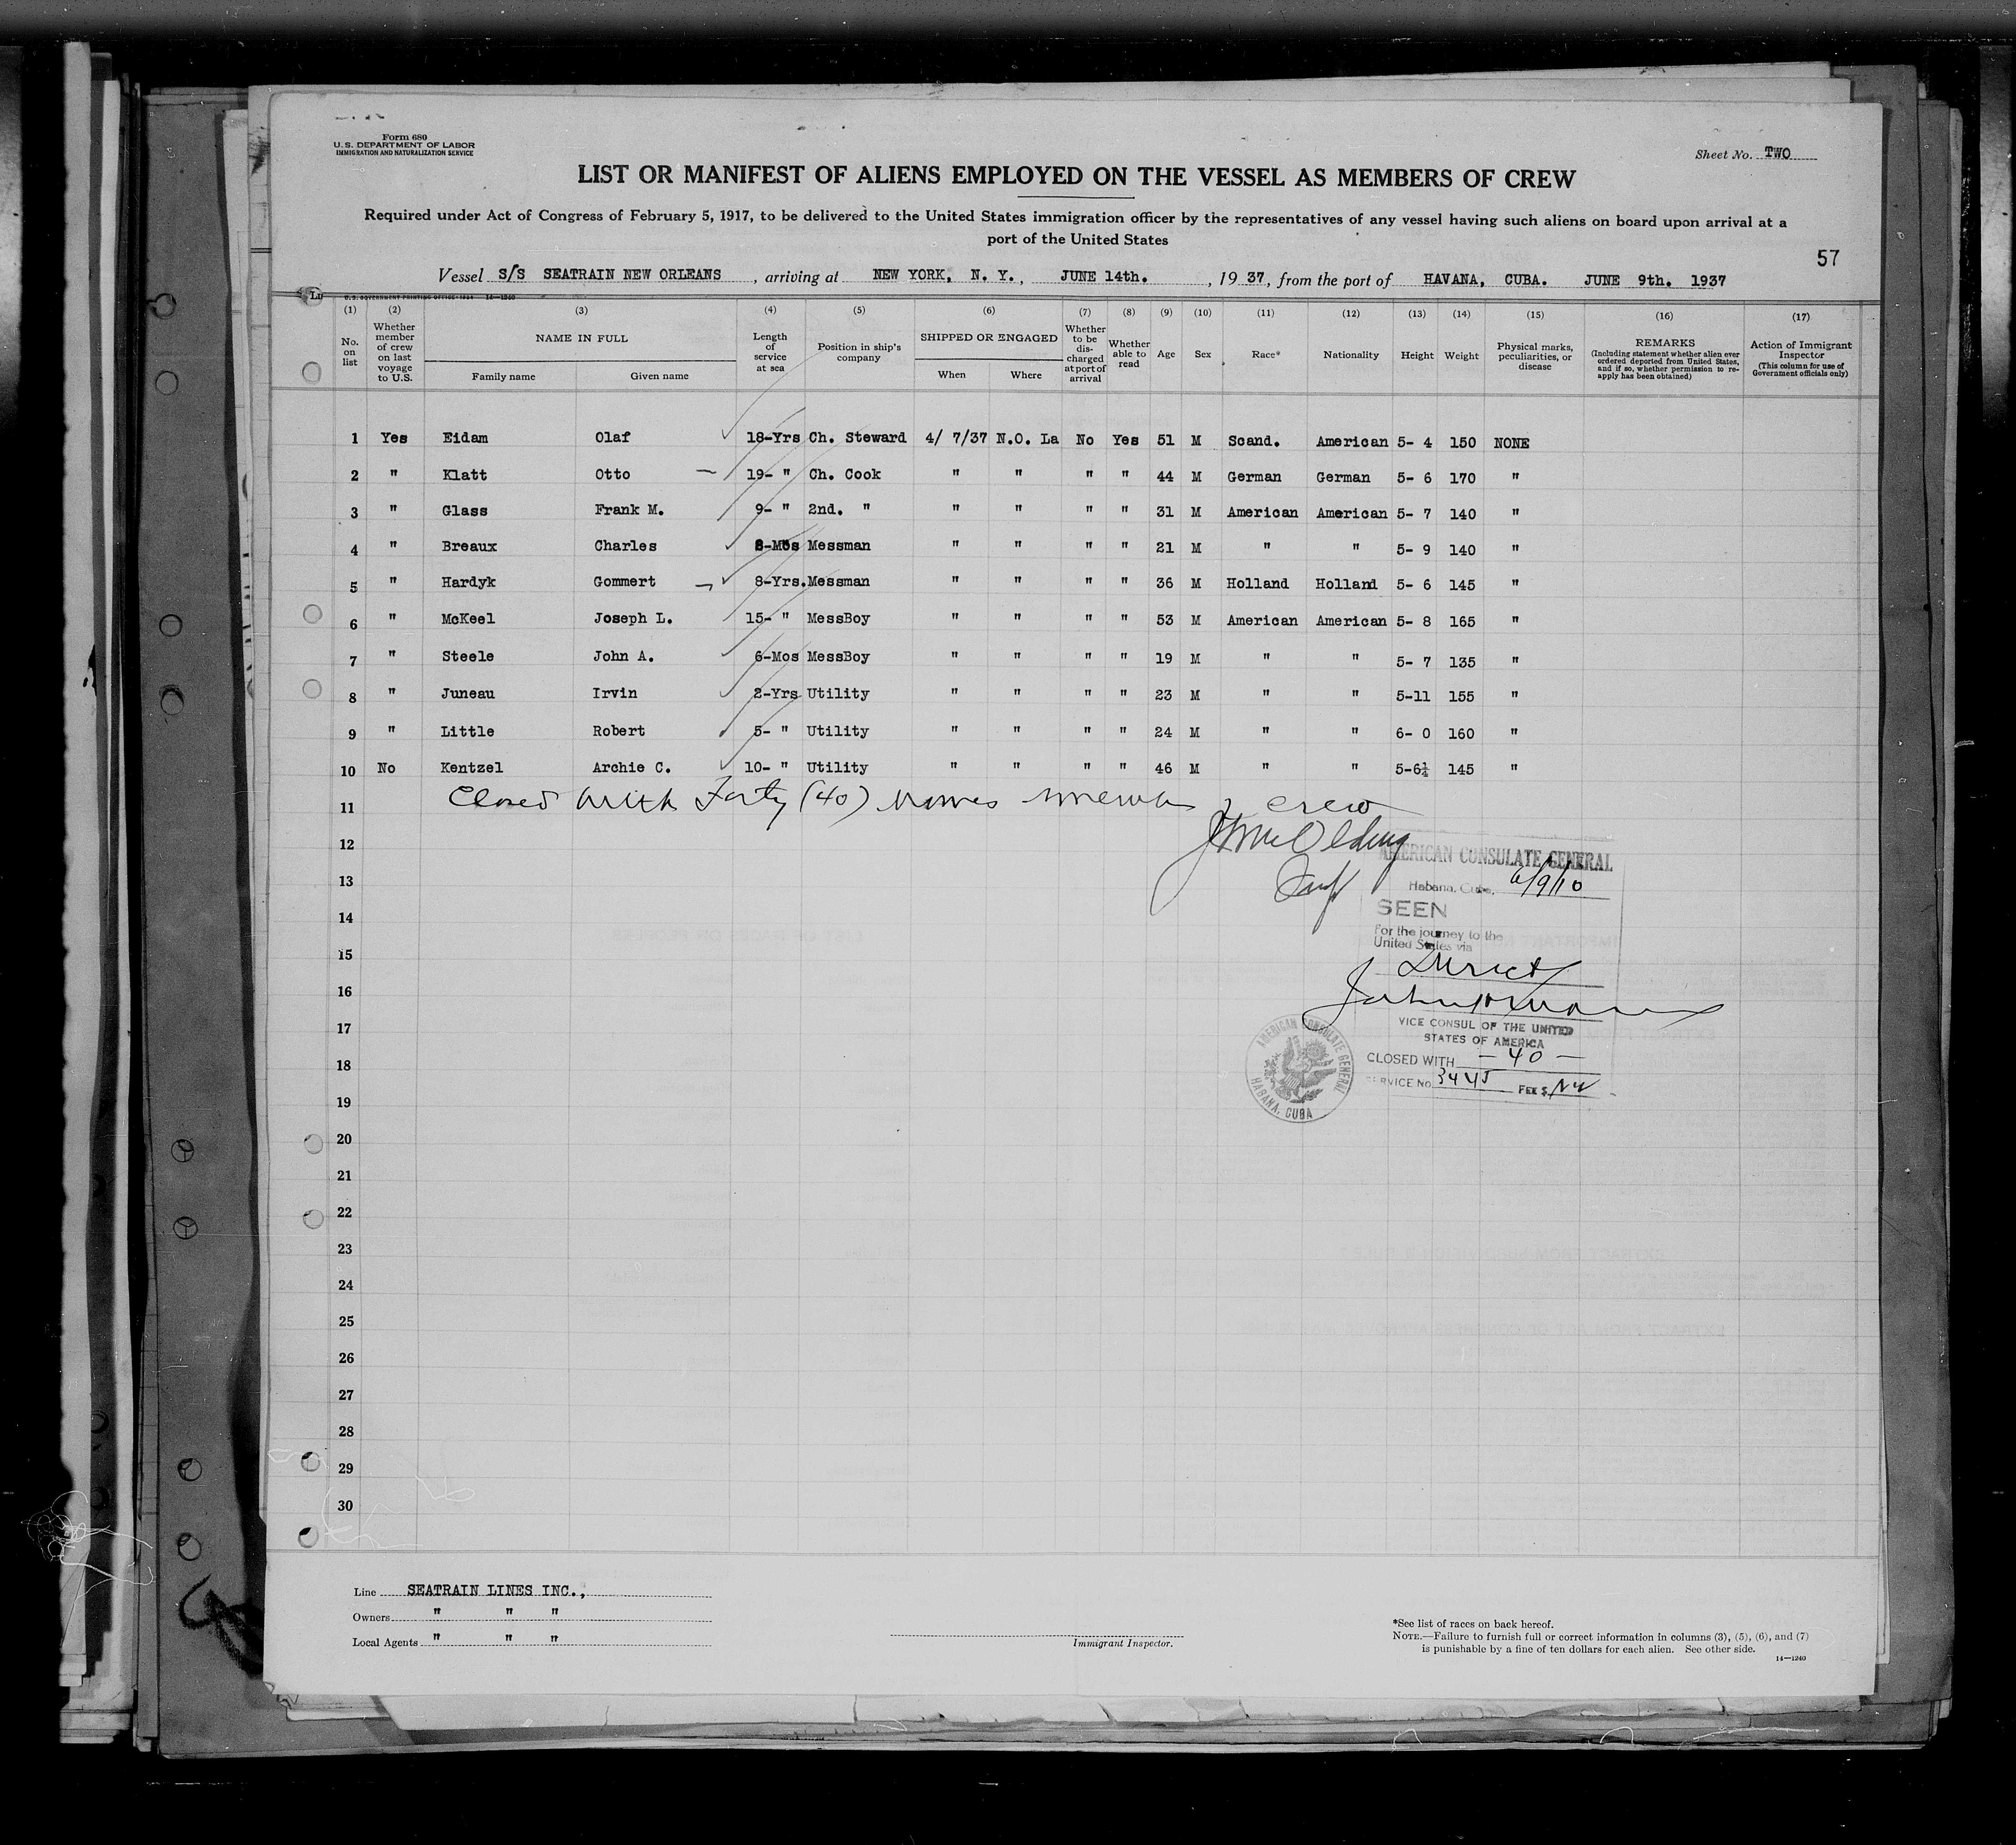 Form 680
U.S. DEPARTMENT OF LABOR
IMMIGRATION AND NATURALIZATION SERVICE
Sheet No. TWO
LIST OR MANIFEST OF ALIENS EMPLOYED ON THE VESSEL AS MEMBERS OF CREW
Required under Act of Congress of February 5, 1917, to be delivered to the United States immigration officer by the representatives of any vessel having such aliens on board upon arrival at a
port of the United States
57
Vessel S/S SEATRAIN NEW ORLEANS, arriving at NEW YORK, N. Y., JUNE 14th., 1937, from the port of HAVANA, CUBA. JUNE 9th. 1937
U.S. GOVERNMENT PRINTING OFFICE: 1934 14—1240
(1) (2) (3) (4) (5) (6) (7) (8) (9) (10) (11) (12) (13) (14) (15) (16) (17)
No. on list
Whether member of crew on last voyage to U.S.
NAME IN FULL
Family name Given name
Length of service at sea
Position in ship's company
SHIPPED OR ENGAGED
When Where
Whether to be discharged at port of arrival
Whether able to read
Age Sex Race* Nationality Height Weight
Physical marks, peculiarities, or disease
REMARKS
(Including statement whether alien ever ordered deported from United States, and if so, whether permission to re-apply has been obtained)
Action of Immigrant Inspector
(This column for use of Government officials only)
1 Yes Eidam Olaf 18-Yrs Ch. Steward 4/ 7/37 N.O. La No Yes 51 M Scand. American 5- 4 150 NONE
2 " Klatt Otto 19- " Ch. Cook " " " " 44 M German German 5- 6 170 "
3 " Glass Frank M. 9- " 2nd. " " " " " 31 M American American 5- 7 140 "
4 " Breaux Charles 8-Mos Messman " " " " 21 M " " 5- 9 140 "
5 " Hardyk Gommert 8-Yrs. Messman " " " " 36 M Holland Holland 5- 6 145 "
6 " McKeel Joseph L. 15- " MessBoy " " " " 53 M American American 5- 8 165 "
7 " Steele John A. 6-Mos MessBoy " " " " 19 M " " 5- 7 135 "
8 " Juneau Irvin 2-Yrs Utility " " " " 23 M " " 5-11 155 "
9 " Little Robert 5- " Utility " " " " 24 M " " 6- 0 160 "
10 No Kentzel Archie C. 10- " Utility " " " " 46 M " " 5-6¼ 145 "
11 Closed with Forty (40) names crew
12
13
14
15
16
17
18
19
20
21
22
23
24
25
26
27
28
29
30
AMERICAN CONSULATE GENERAL
Habana, Cuba,
SEEN
For the journey to the
United States via
Direct
VICE CONSUL OF THE UNITED
STATES OF AMERICA
CLOSED WITH — 40 —
SERVICE No. 3445 FEE $
AMERICAN CONSULATE GENERAL
HABANA, CUBA
Line SEATRAIN LINES INC.,
Owners " " "
Local Agents " " "
Immigrant Inspector.
*See list of races on back hereof.
NOTE.—Failure to furnish full or correct information in columns (3), (5), (6), and (7)
is punishable by a fine of ten dollars for each alien. See other side.
14—1240